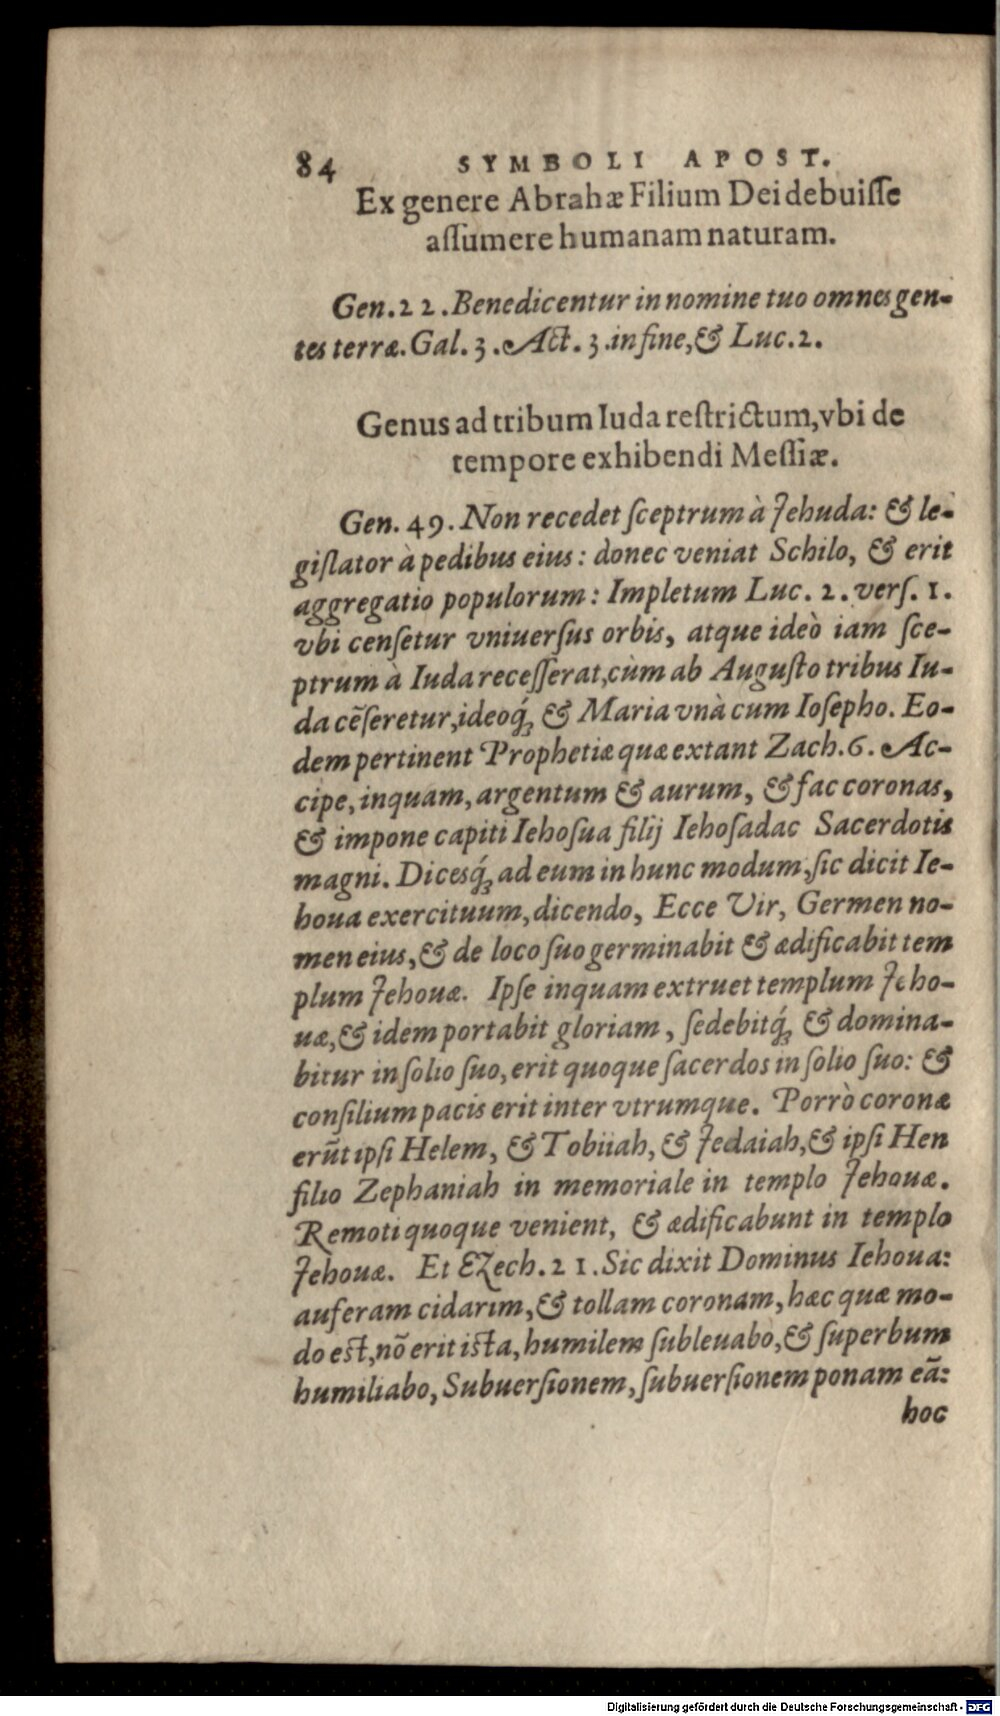 84 SYMBOLI APOST.
Ex genere Abrahæ Filium Dei debuiſſe
aſſumere humanam naturam.
Gen. 22. Benedicentur in nomine tuo omnes gen-
tes terræ. Gal. 3. Act. 3. in fine, & Luc. 2.
Genus ad tribum Iuda reſtrictum, vbi de
tempore exhibendi Meſſiæ.
Gen. 49. Non recedet ſceptrum à Jehuda: & le-
giſlator à pedibus eius: donec veniat Schilo, & erit
aggregatio populorum: Impletum Luc. 2. verſ. 1.
vbi cenſetur vniuerſus orbis, atque ideò iam ſce-
ptrum à Iuda receſſerat, cùm ab Auguſto tribus Iu-
da cẽſeretur, ideoq́ꝫ & Maria vnà cum Ioſepho. Eo-
dem pertinent Prophetiæ quæ extant Zach. 6. Ac-
cipe, inquam, argentum & aurum, & fac coronas,
& impone capiti Iehoſua filij Iehoſadac Sacerdotis
magni. Dicesq́ꝫ ad eum in hunc modum, ſic dicit Ie-
houa exercituum, dicendo, Ecce Vir, Germen no-
men eius, & de loco ſuo germinabit & ædificabit tem
plum Jehouæ. Ipſe inquam extruet templum Jeho-
uæ, & idem portabit gloriam, ſedebitq́ꝫ & domina-
bitur in ſolio ſuo, erit quoque ſacerdos in ſolio ſuo: &
conſilium pacis erit inter vtrumque. Porrò coronæ
erũt ipſi Helem, & Tobiiah, & Jedaiah, & ipſi Hen
filio Zephaniah in memoriale in templo Jehouæ.
Remoti quoque venient, & ædificabunt in templo
Jehouæ. Et Ezech. 21. Sic dixit Dominus Iehoua:
auferam cidarim, & tollam coronam, hæc quæ mo-
do eſt, nõ erit iſta, humilem ſubleuabo, & ſuperbum
humiliabo, Subuerſionem, ſubuerſionem ponam eã:
hoc
Digitalisierung gefördert durch die Deutsche Forschungsgemeinschaft - DFG